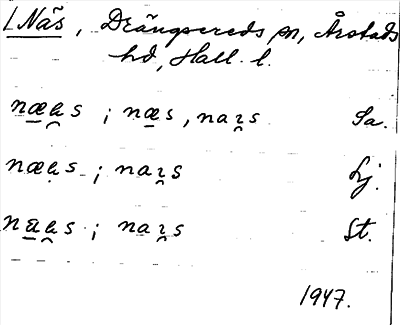 LNäs, Drängsereds sn, Årstads
hd, Hall. l.
næ̱ɦs ; næ̱s, naɪs Sa.
næɦs ; naɪs Lj.
na̱ɦs ; naɪs St.
1947.